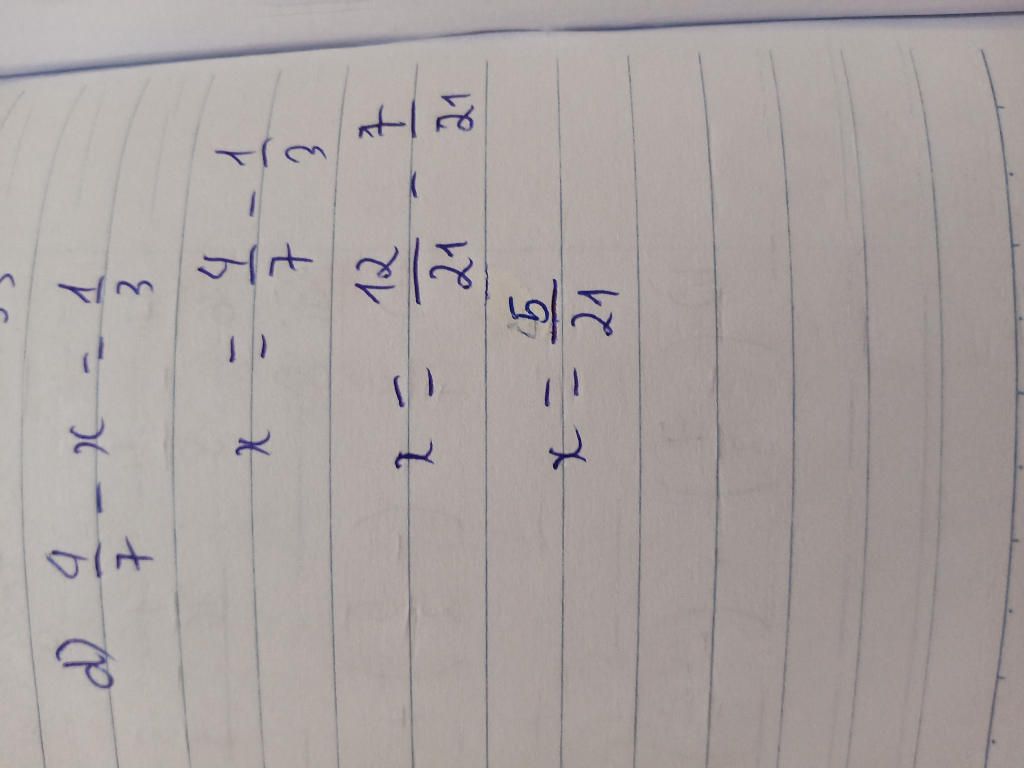 d) 4/7 - x = 1/3
x = 4/7 - 1/3
x = 12/21 - 7/21
x = 5/21